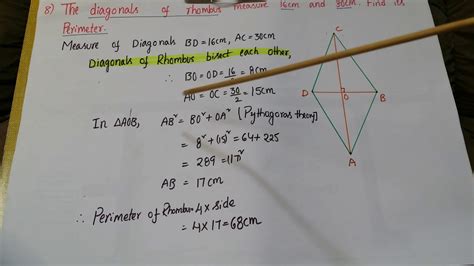 8) The diagonals of rhombus measure 16cm and 30cm. Find its
Perimeter.
Measure of Diagonals BD=16cm, AC=30cm
Diagonals of Rhombus bisect each other,
∴ BO=OD=16/2=8cm
AO=OC=30/2=15cm
In △AOB, AB²=BO²+OA² (Pythagoras theory)
=8²+(15)²=64+225
=289=(17)²
AB=17cm
∴ Perimeter of Rhombus=4×side
=4×17=68cm
C
D
O
B
A